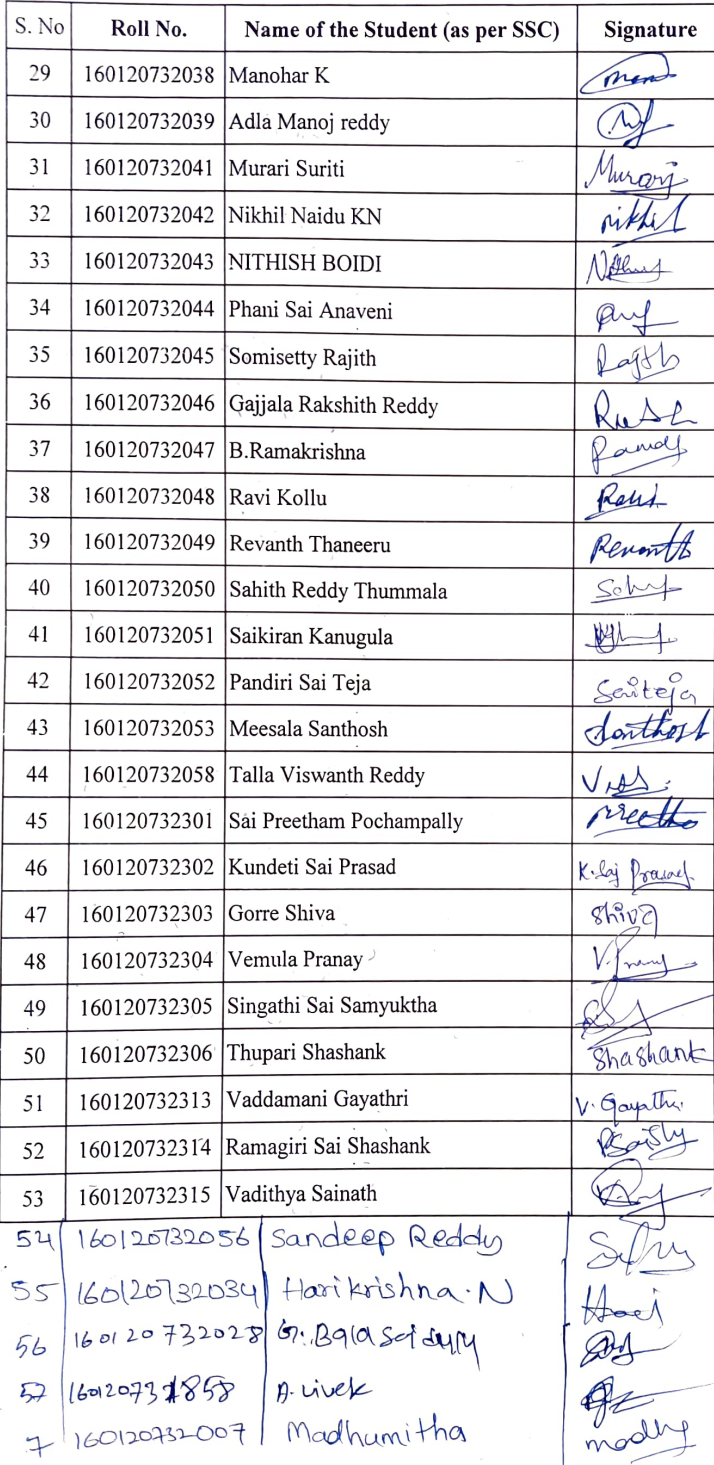 S. No Roll No. Name of the Student (as per SSC) Signature
29 160120732038 Manohar K
30 160120732039 Adla Manoj reddy
31 160120732041 Murari Suriti Murari
32 160120732042 Nikhil Naidu KN nikhil
33 160120732043 NITHISH BOIDI
34 160120732044 Phani Sai Anaveni
35 160120732045 Somisetty Rajith Rajith
36 160120732046 Gajjala Rakshith Reddy
37 160120732047 B.Ramakrishna
38 160120732048 Ravi Kollu Ravi
39 160120732049 Revanth Thaneeru Revanth
40 160120732050 Sahith Reddy Thummala
41 160120732051 Saikiran Kanugula
42 160120732052 Pandiri Sai Teja Saiteja
43 160120732053 Meesala Santhosh Santhosh
44 160120732058 Talla Viswanth Reddy
45 160120732301 Sai Preetham Pochampally
46 160120732302 Kundeti Sai Prasad K. Sai Prasad
47 160120732303 Gorre Shiva Shiva
48 160120732304 Vemula Pranay
49 160120732305 Singathi Sai Samyuktha
50 160120732306 Thupari Shashank Shashank
51 160120732313 Vaddamani Gayathri V. Gayathri
52 160120732314 Ramagiri Sai Shashank
53 160120732315 Vadithya Sainath
54 160120732056 Sandeep Reddy
55 160120732034 Harikrishna.N Hari
56 160120732028 G. Bala
57 A. vivek
7 160120732007 Madhumitha madhu